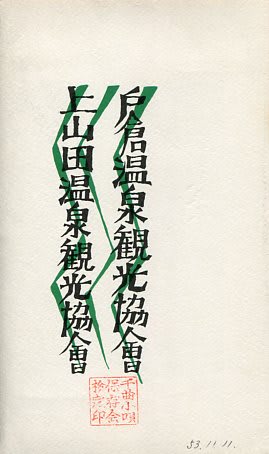 戸倉温泉観光協会
上山田温泉観光協会
千曲小唄
保存会
検定印
53.11.11.